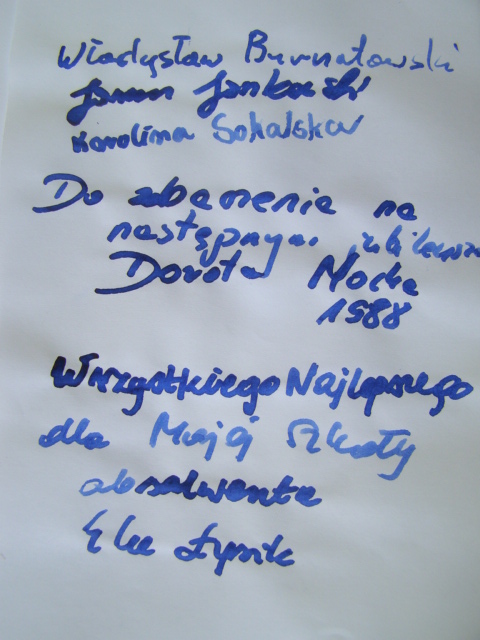 Władysław Burnatowski
Janusz Jankowski
Karolina Sokalska
Do zobaczenia na
następnym jubileuszu
Dorota Nocka
1988
Wszystkiego Najlepszego
dla Mojej Szkoły
absolwentka
Ela Łysik